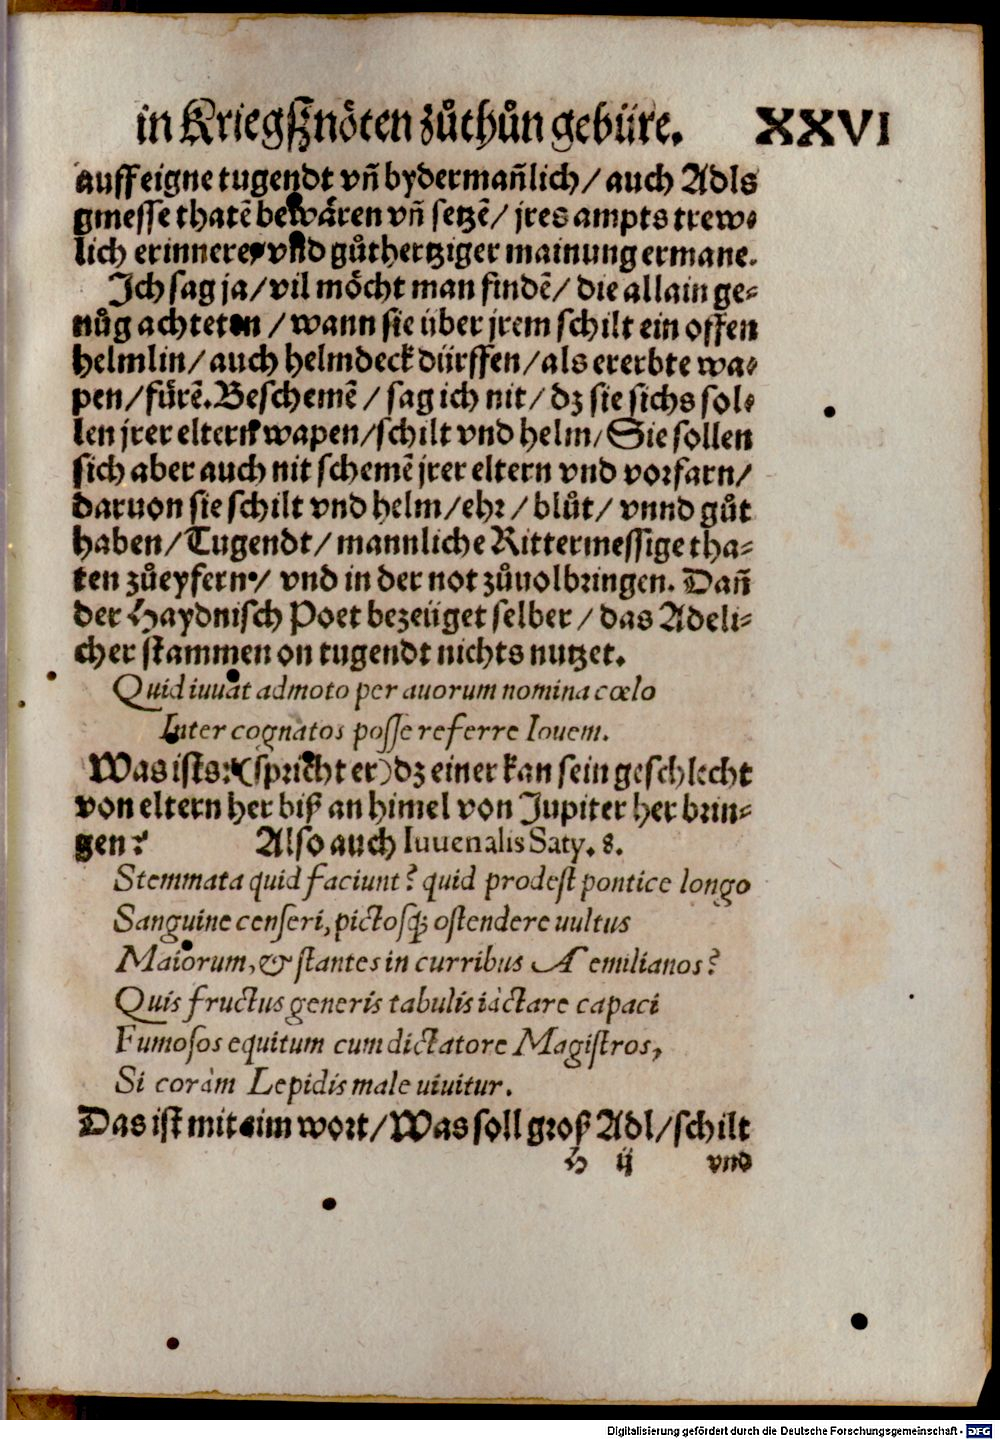 in Kriegßznöten zůthůn gebüre. XXVI
auff eigne tugendt vñ bydermañlich / auch Adls
gmesse thatẽ bewären vñ setzẽ / jres ampts trew-
lich erinnere, vnd gůthertziger mainung ermane.
Ich sag ja / vil möcht man findẽ / die allain ge-
nůg achteten / wann sie über jrem schilt ein offen
helmlin / auch helmdeck dürffen / als ererbte wa-
pen / fürẽ. Beschemẽ / sag ich nit / dz sie sichs sol-
len jrer eltern wapen / schilt vnd helm / Sie sollen
sich aber auch nit schemẽ jrer eltern vnd vorfarn /
daruon sie schilt vnd helm / ehr / blůt / vnnd gůt
haben / Tugendt / mannliche Rittermessige tha-
ten zůeyfern / vnd in der not zůuolbringen. Dañ
der Haydnisch Poet bezeüget selber / das Adeli-
cher stammen on tugendt nichts nutzet.
Quid iuuat admoto per auorum nomina cœlo
Inter cognatos posse referre Iouem.
Was ists? (spricht er) dz einer kan sein geschlecht
von eltern her biß an himel von Jupiter her brin-
gen? Also auch Iuuenalis Saty. 8.
Stemmata quid faciunt? quid prodest pontice longo
Sanguine censeri, pictosq; ostendere uultus
Maiorum, & stantes in curribus Aemilianos?
Quis fructus generis tabulis iactare capaci
Fumosos equitum cum dictatore Magistros,
Si coràm Lepidis male uiuitur.
Das ist mit eim wort / Was soll groß Adl / schilt
H ij vnd
Digitalisierung gefördert durch die Deutsche Forschungsgemeinschaft - DFG